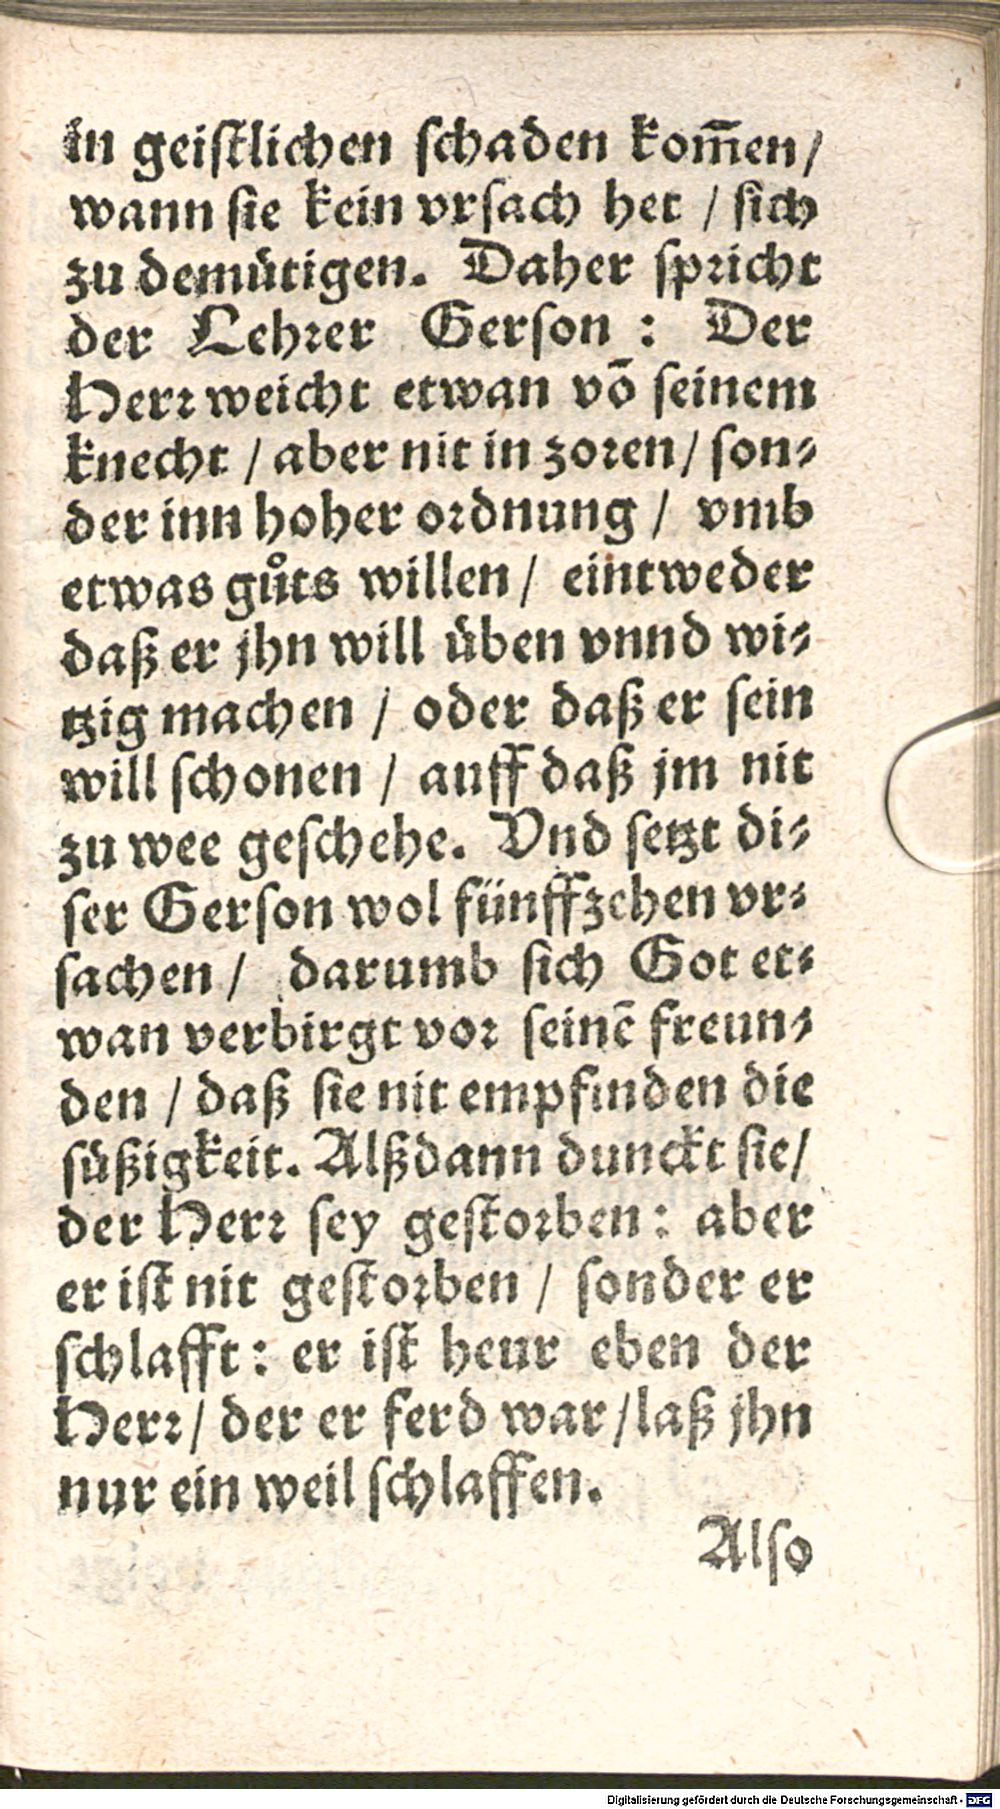 in geiſtlichen ſchaden kom̃en/
wann ſie kein vrſach het / ſich
zu demuͤtigen. Daher ſpricht
der Lehrer Gerſon : Der
Herr weicht etwan võ ſeinem
knecht / aber nit in zoren/ ſon⸗
der inn hoher ordnung / vmb
etwas gůts willen / eintweder
daß er jhn will uͤben vnnd wi⸗
tzig machen / oder daß er ſein
will ſchonen / auff daß jm nit
zu wee geſchehe. Vnd ſetzt di⸗
ſer Gerſon wol fuͤnffzehen vr⸗
ſachen / darumb ſich Got et⸗
wan verbirgt vor ſeinẽ freun⸗
den / daß ſie nit empfinden die
ſuͤßigkeit. Alßdann dunckt ſie/
der Herr ſey geſtorben: aber
er iſt nit geſtorben / ſonder er
ſchlafft: er iſt heur eben der
Herr/ der er ferd war/laß jhn
nur ein weil ſchlaffen.
Alſo
Digitalisierung gefördert durch die Deutsche Forschungsgemeinschaft - DFG